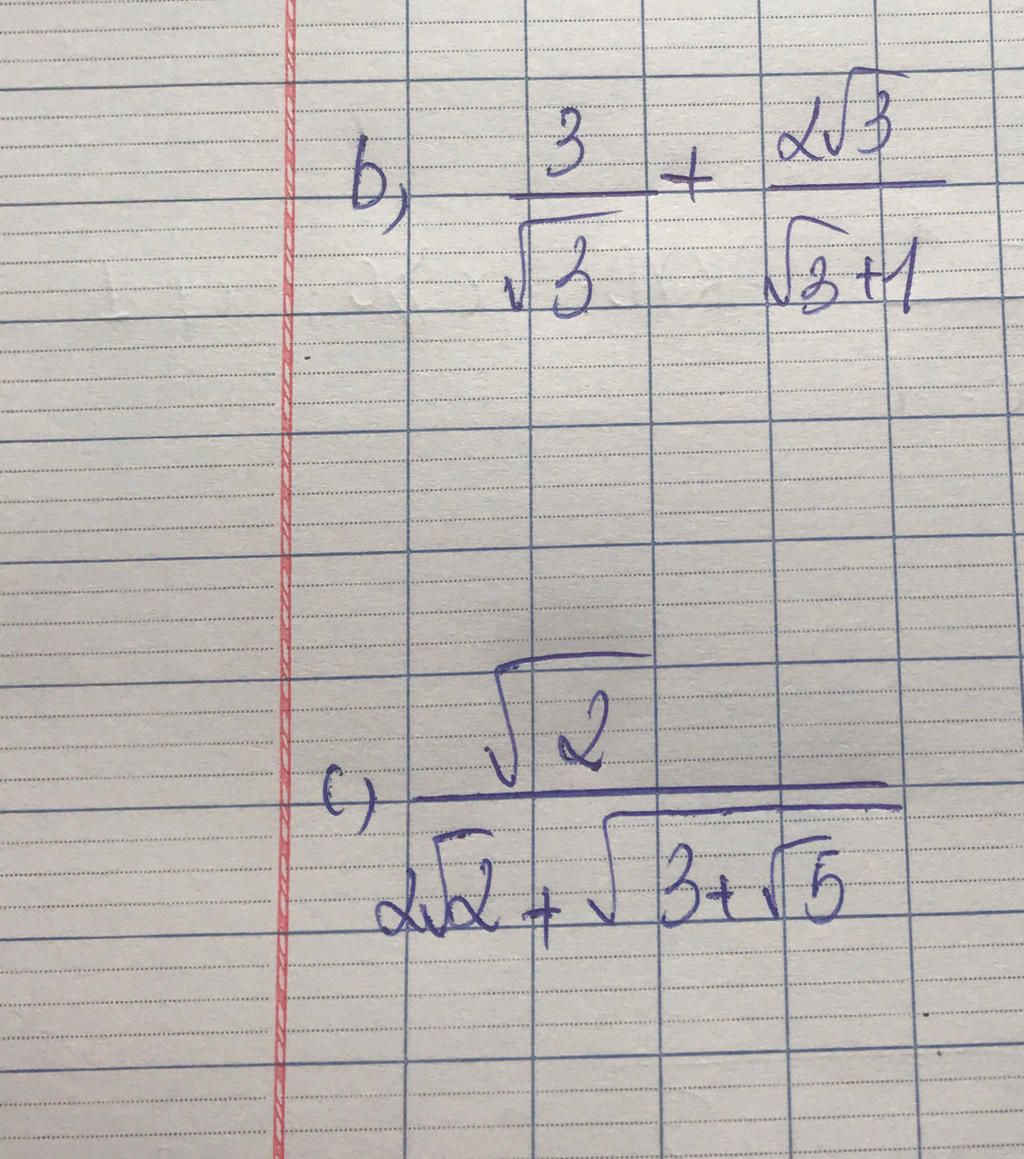 b, 3/√3 + 2√3/(√3+1)
c) √2/(2√2 + √(3+√5))